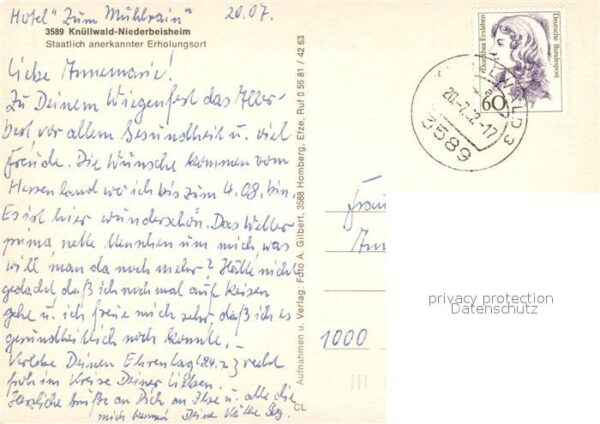 Hotel "Zum Mühlrain" 20.07.
3589 Knüllwald-Niederbeisheim
Staatlich anerkannter Erholungsort
Liebe Annemarie!
Zu Deinem Wiegenfest das Aller-
best vor allem Gesundheit u. viel
Freude. Die Wünsche kommen vom
Hessenland wo ich bis zum 4.08. bin.
Es ist hier wunderschön. Das Wetter
prima nette Menschen um mich was
will man da noch mehr? Hätte nicht
gedacht daß ich nochmal auf Reisen
gehe u. ich freue mich sehr daß ich es
gesundheitlich noch konnte.-
Verlebe Deinen Ehrentag (24.7.) recht
froh im Kreise Deiner Lieben.
Herzliche Grüße an Dich an Ilse u. alle die
mich kennen Deine Käthe
CL
Aufnahmen u. Verlag: Foto A. Gilbert, 3588 Homberg, Efze, Ruf 0 56 81 / 42 63
Dorothea Erxleben
Deutsche Bundespost
60
20.-7.-17
3589
3
Frau
1000
privacy protection
Datenschutz